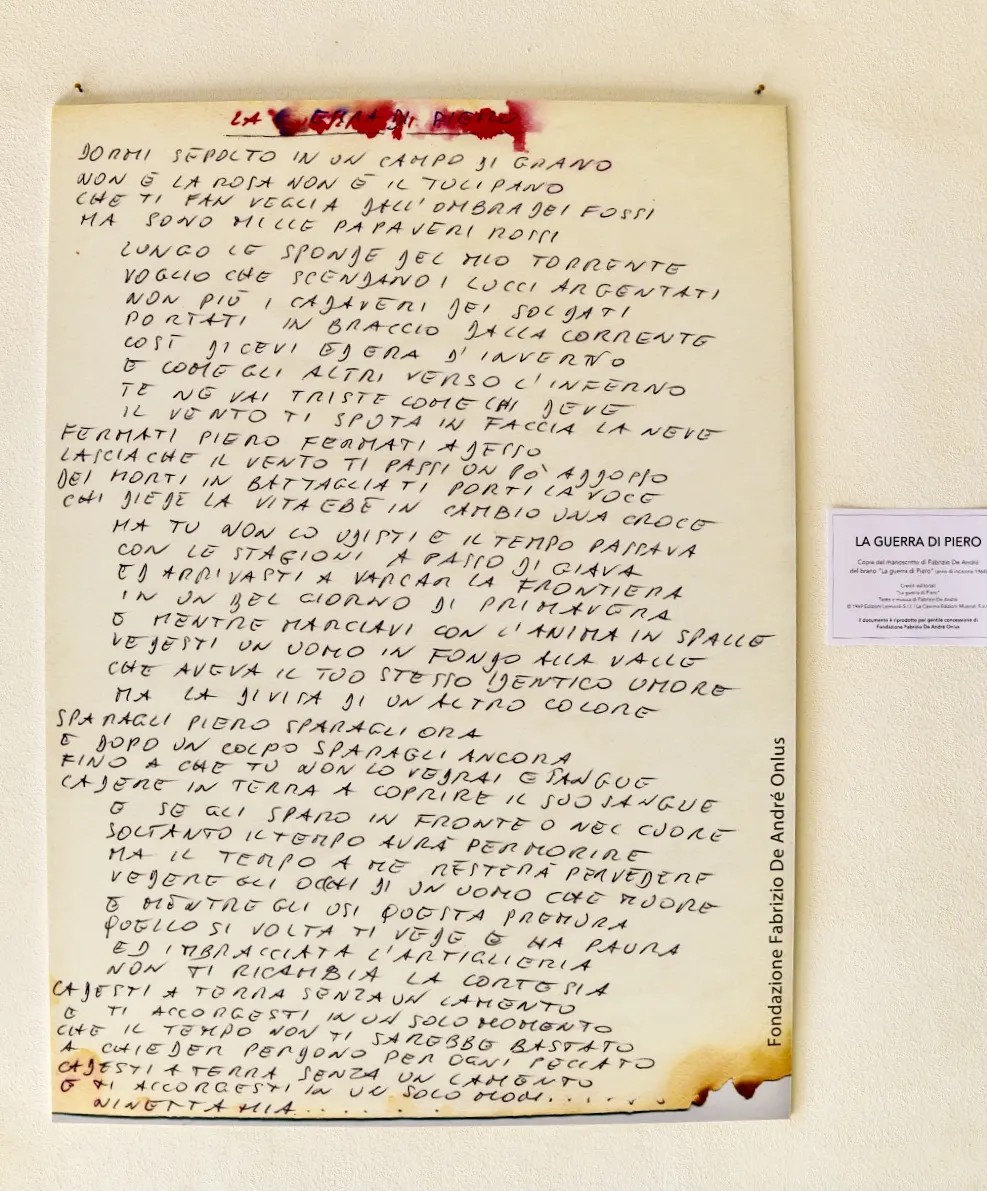 LA GUERRA DI PIERO
DORMI SEPOLTO IN UN CAMPO DI GRANO
NON È LA ROSA NON È IL TULIPANO
CHE TI FAN VEGLIA DALL'OMBRA DEI FOSSI
MA SONO MILLE PAPAVERI ROSSI
LUNGO LE SPONDE DEL MIO TORRENTE
VOGLIO CHE SCENDANO I LUCCI ARGENTATI
NON PIÙ I CADAVERI DEI SOLDATI
PORTATI IN BRACCIO DALLA CORRENTE
COSÌ DICEVI ED ERA D'INVERNO
E COME GLI ALTRI VERSO L'INFERNO
TE NE VAI TRISTE COME CHI DEVE
IL VENTO TI SPUTA IN FACCIA LA NEVE
FERMATI PIERO FERMATI ADESSO
LASCIA CHE IL VENTO TI PASSI UN PÒ ADDOSSO
DEI MORTI IN BATTAGLIA TI PORTI LA VOCE
CHI DIEDE LA VITA EBE IN CAMBIO UNA CROCE
MA TU NON LO UDISTI E IL TEMPO PASSAVA
CON LE STAGIONI A PASSO DI GIAVA
ED ARRIVASTI A VARCAR LA FRONTIERA
IN UN BEL GIORNO DI PRIMAVERA
E MENTRE MARCIAVI CON L'ANIMA IN SPALLE
VEDESTI UN UOMO IN FONDO ALLA VALLE
CHE AVEVA IL TUO STESSO IDENTICO UMORE
MA LA DIVISA DI UN ALTRO COLORE
SPARAGLI PIERO SPARAGLI ORA
E DOPO UN COLPO SPARAGLI ANCORA
FINO A CHE TU NON LO VEDRAI ESANGUE
CADERE IN TERRA A COPRIRE IL SUO SANGUE
E SE GLI SPARO IN FRONTE O NEL CUORE
SOLTANTO IL TEMPO AVRÀ PER MORIRE
MA IL TEMPO A ME RESTERÀ PER VEDERE
VEDERE GLI OCCHI DI UN UOMO CHE MUORE
E MENTRE GLI USI QUESTA PREMURA
QUELLO SI VOLTA TI VEDE E HA PAURA
ED IMBRACCIATA L'ARTIGLIERIA
NON TI RICAMBIA LA CORTESIA
CADESTI A TERRA SENZA UN LAMENTO
E TI ACCORGESTI IN UN SOLO MOMENTO
CHE IL TEMPO NON TI SAREBBE BASTATO
A CHIEDER PERDONO PER OGNI PECCATO
CADESTI A TERRA SENZA UN LAMENTO
E TI ACCORGESTI IN UN SOLO MOM.......
NINETTA MIA.......
Fondazione Fabrizio De André Onlus
LA GUERRA DI PIERO
Copia del manoscritto di Fabrizio De André
del brano "La guerra di Piero"
Crediti editoriali:
"La guerra di Piero"
Testo e musica di Fabrizio De André
Il documento è riprodotto per gentile concessione di
Fondazione Fabrizio De André Onlus